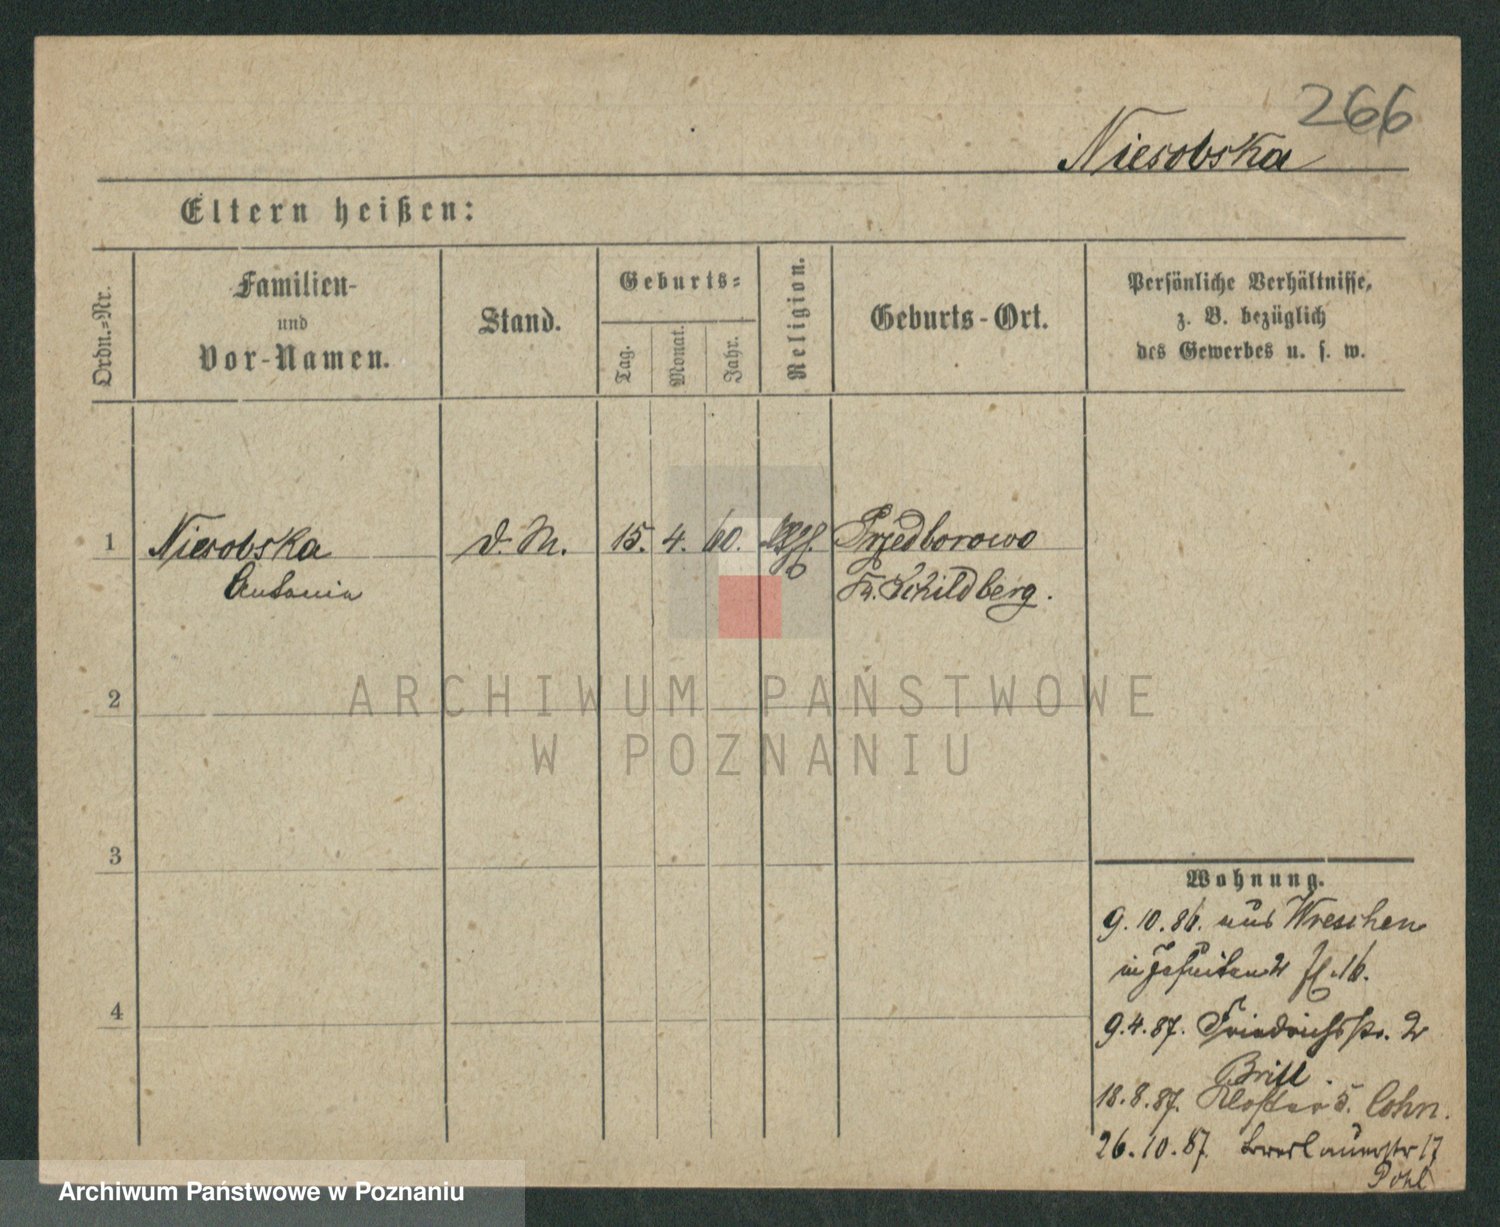 266
Niesobska
Eltern heißen:
Ordn.=Nr.
Familien-
und
Vor-Namen.
Stand.
Geburts=
Tag.
Monat.
Jahr.
Religion.
Geburts-Ort.
Persönliche Verhältnisse,
z. B. bezüglich
des Gewerbes u. s. w.
1 Niesobska d. M. 15. 4. 60. Przedborowo
Antonia Kr. Schildberg.
ARCHIWUM PAŃSTWOWE
W POZNANIU
2
3
4
Wohnung.
9. 10. 86. aus Wreschen
in Jesuiten 2 16.
9. 4. 87. Friedrichsstr. 2
Brill.
18. 8. 87. Kloster 5. Cohn.
26. 10. 87. Breslauerstr 17
Pohl
Archiwum Państwowe w Poznaniu